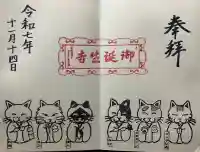 奉拝
御誕生寺
令和七年
十二月十四日